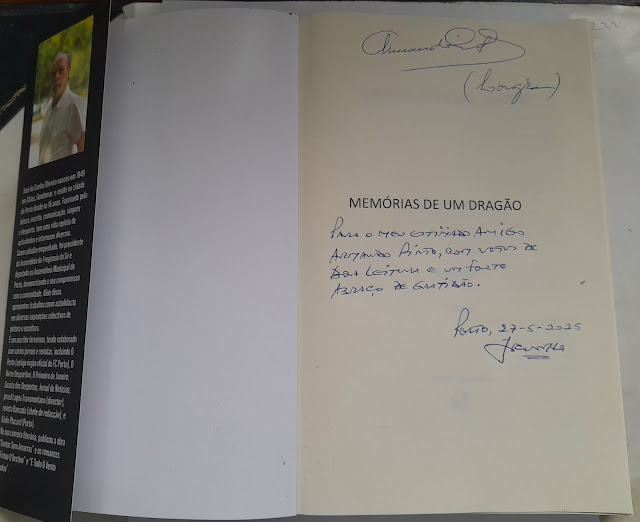 José da Cunha Oliveira nasceu em 1949
em Rates, Gondomar, e reside na cidade
do Porto desde os 16 anos. Fascinado pela
leitura, escrita, comunicação, viagens
e desporto, tem uma vida repleta de
actividades e interesses diversos.
Como cidadão empenhado, foi presidente
da Assembleia de Freguesia da Sé e
deputado na Assembleia Municipal do
Porto, demonstrando o seu compromisso
com a comunidade. Além disso,
apresentou trabalhos como autodidacta
em diversas exposições colectivas de
pintura e escultura.
É um escritor fervoroso, tendo colaborado
com vários jornais e revistas, incluindo O
Porto (antigo órgão oficial do FC Porto), O
Norte Desportivo, O Primeiro de Janeiro,
Gazeta dos Desportos, Jornal de Notícias,
jornal Lagoa Transmontana (director),
revista Bancada (chefe de redacção), e
Rádio Placard (Porto).
Na sua carreira literária, publicou a obra
"Contos Sem Amarras" e os romances
O Destino" e "E Tudo O Vento
Armando Pinto
(Longra)
MEMÓRIAS DE UM DRAGÃO
PARA O MEU ESTIMADO AMIGO
ARMANDO PINTO, COM VOTOS DE
BOA LEITURA E UM FORTE
ABRAÇO DE GRATIDÃO.
Porto, 27-5-2025